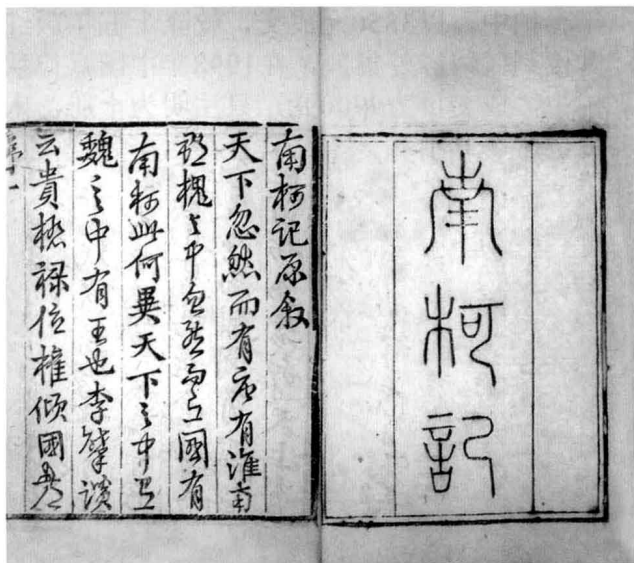 南柯記
南柯記原敘
天下忽然而有唐有淮南
郡槐之中忽然而有國有
南柯此何異天下之中有
魏之中有王也李肇讚
云貴極祿位權傾國都